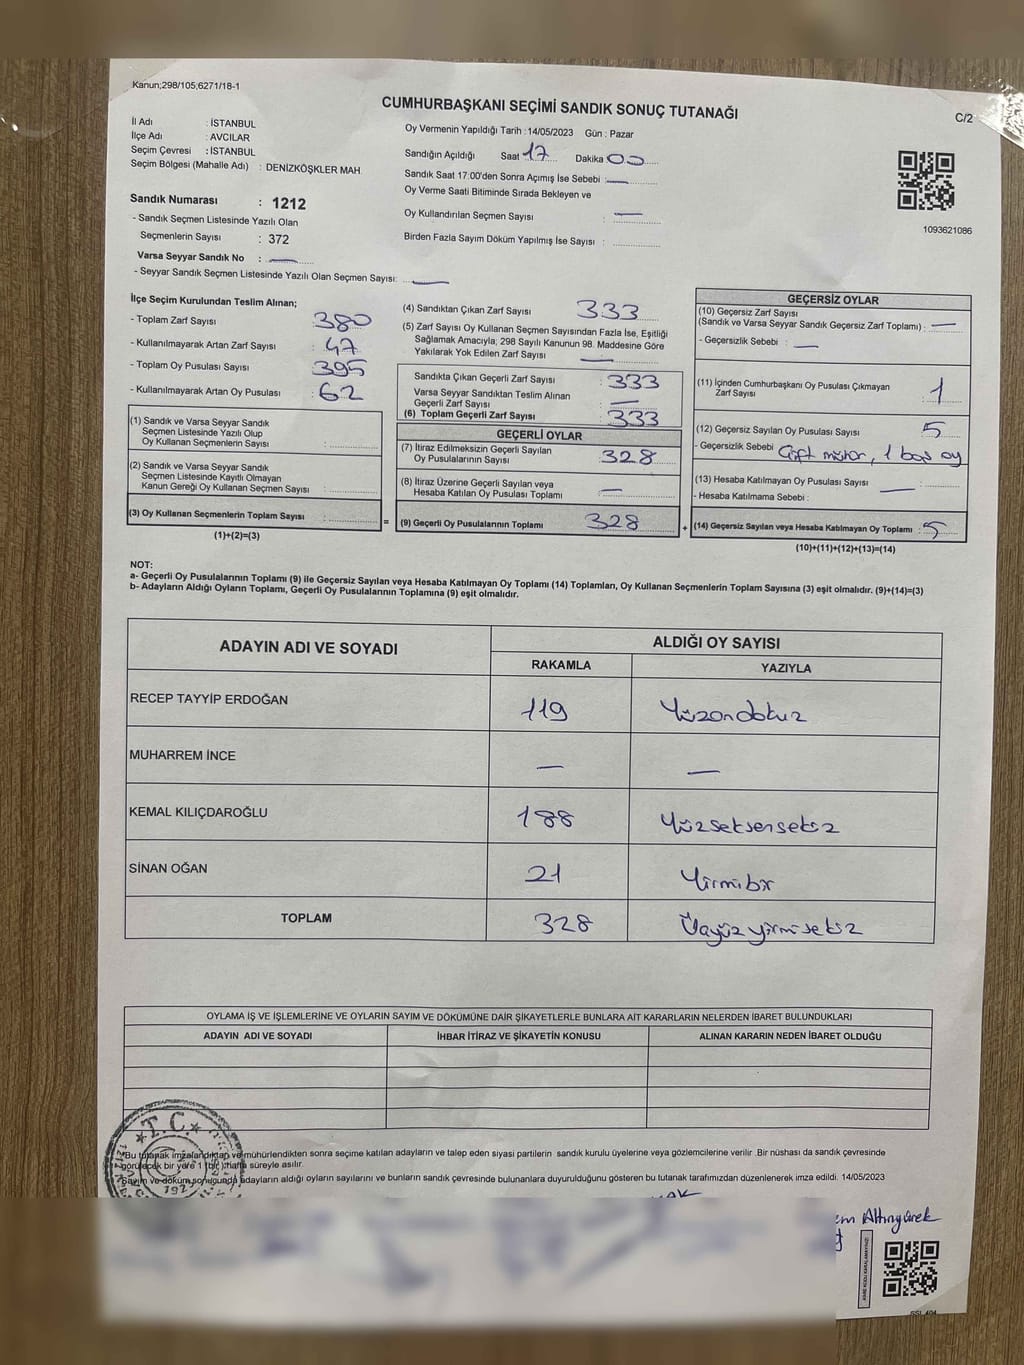 Kanun;298/105;6271/18-1
CUMHURBAŞKANI SEÇİMİ SANDIK SONUÇ TUTANAĞI
C/2
İl Adı : İSTANBUL
İlçe Adı : AVCILAR
Seçim Çevresi : İSTANBUL
Seçim Bölgesi (Mahalle Adı) : DENİZKÖŞKLER MAH
Oy Vermenin Yapıldığı Tarih :14/05/2023 Gün : Pazar
Sandığın Açıldığı Saat 17 Dakika 00
Sandık Saat 17:00'den Sonra Açımış İse Sebebi : —
Oy Verme Saati Bitiminde Sırada Bekleyen ve
Oy Kullandırılan Seçmen Sayısı : —
Birden Fazla Sayım Döküm Yapılmış İse Sayısı :
1093621086
Sandık Numarası : 1212
- Sandık Seçmen Listesinde Yazılı Olan
Seçmenlerin Sayısı : 372
Varsa Seyyar Sandık No : —
- Seyyar Sandık Seçmen Listesinde Yazılı Olan Seçmen Sayısı: —
İlçe Seçim Kurulundan Teslim Alınan;
- Toplam Zarf Sayısı : 380
- Kullanılmayarak Artan Zarf Sayısı : 47
- Toplam Oy Pusulası Sayısı : 395
- Kullanılmayarak Artan Oy Pusulası : 62
(1) Sandık ve Varsa Seyyar Sandık
Seçmen Listesinde Yazılı Olup
Oy Kullanan Seçmenlerin Sayısı :
(2) Sandık ve Varsa Seyyar Sandık
Seçmen Listesinde Kayıtlı Olmayan
Kanun Gereği Oy Kullanan Seçmen Sayısı :
(3) Oy Kullanan Seçmenlerin Toplam Sayısı :
(1)+(2)=(3)
=
(4) Sandıktan Çıkan Zarf Sayısı : 333
(5) Zarf Sayısı Oy Kullanan Seçmen Sayısından Fazla İse, Eşitliği
Sağlamak Amacıyla; 298 Sayılı Kanunun 98. Maddesine Göre
Yakılarak Yok Edilen Zarf Sayısı : —
Sandıkta Çıkan Geçerli Zarf Sayısı : 333
Varsa Seyyar Sandıktan Teslim Alınan
Geçerli Zarf Sayısı : —
(6) Toplam Geçerli Zarf Sayısı : 333
GEÇERLİ OYLAR
(7) İtiraz Edilmeksizin Geçerli Sayılan
Oy Pusulalarının Sayısı : 328
(8) İtiraz Üzerine Geçerli Sayılan veya
Hesaba Katılan Oy Pusulası Toplamı : —
(9) Geçerli Oy Pusulalarının Toplamı : 328
+
GEÇERSİZ OYLAR
(10) Geçersiz Zarf Sayısı
(Sandık ve Varsa Seyyar Sandık Geçersiz Zarf Toplamı) : —
- Geçersizlik Sebebi : —
(11) İçinden Cumhurbaşkanı Oy Pusulası Çıkmayan
Zarf Sayısı : 1
(12) Geçersiz Sayılan Oy Pusulası Sayısı : 5
- Geçersizlik Sebebi : Çift mühür, 1 boş oy
(13) Hesaba Katılmayan Oy Pusulası Sayısı : —
- Hesaba Katılmama Sebebi :
(14) Geçersiz Sayılan veya Hesaba Katılmayan Oy Toplamı : 5
(10)+(11)+(12)+(13)=(14)
NOT:
a- Geçerli Oy Pusulalarının Toplamı (9) ile Geçersiz Sayılan veya Hesaba Katılmayan Oy Toplamı (14) Toplamları, Oy Kullanan Seçmenlerin Toplam Sayısına (3) eşit olmalıdır. (9)+(14)=(3)
b- Adayların Aldığı Oyların Toplamı, Geçerli Oy Pusulalarının Toplamına (9) eşit olmalıdır.
ADAYIN ADI VE SOYADI
ALDIĞI OY SAYISI
RAKAMLA YAZIYLA
RECEP TAYYİP ERDOĞAN 119 Yüzondokuz
MUHARREM İNCE — —
KEMAL KILIÇDAROĞLU 188 Yüzseksensekiz
SİNAN OĞAN 21 Yirmibir
TOPLAM 328 Üçyüzyirmisekiz
OYLAMA İŞ VE İŞLEMLERİNE VE OYLARIN SAYIM VE DÖKÜMÜNE DAİR ŞİKAYETLERLE BUNLARA AİT KARARLARIN NELERDEN İBARET BULUNDUKLARI
ADAYIN ADI VE SOYADI İHBAR İTİRAZ VE ŞİKAYETİN KONUSU ALINAN KARARIN NEDEN İBARET OLDUĞU
T.C.
*Bu tutanak imzalandıktan ve mühürlendikten sonra seçime katılan adayların ve talep eden siyasi partilerin sandık kurulu üyelerine veya gözlemcilerine verilir. Bir nüshası da sandık çevresinde
görülecek bir yere 1 (bir) hafta süreyle asılır.
*Sayım ve döküm sonucunda adayların aldığı oyların sayılarını ve bunların sandık çevresinde bulunanlara duyurulduğunu gösteren bu tutanak tarafımızdan düzenlenerek imza edildi. 14/05/2023